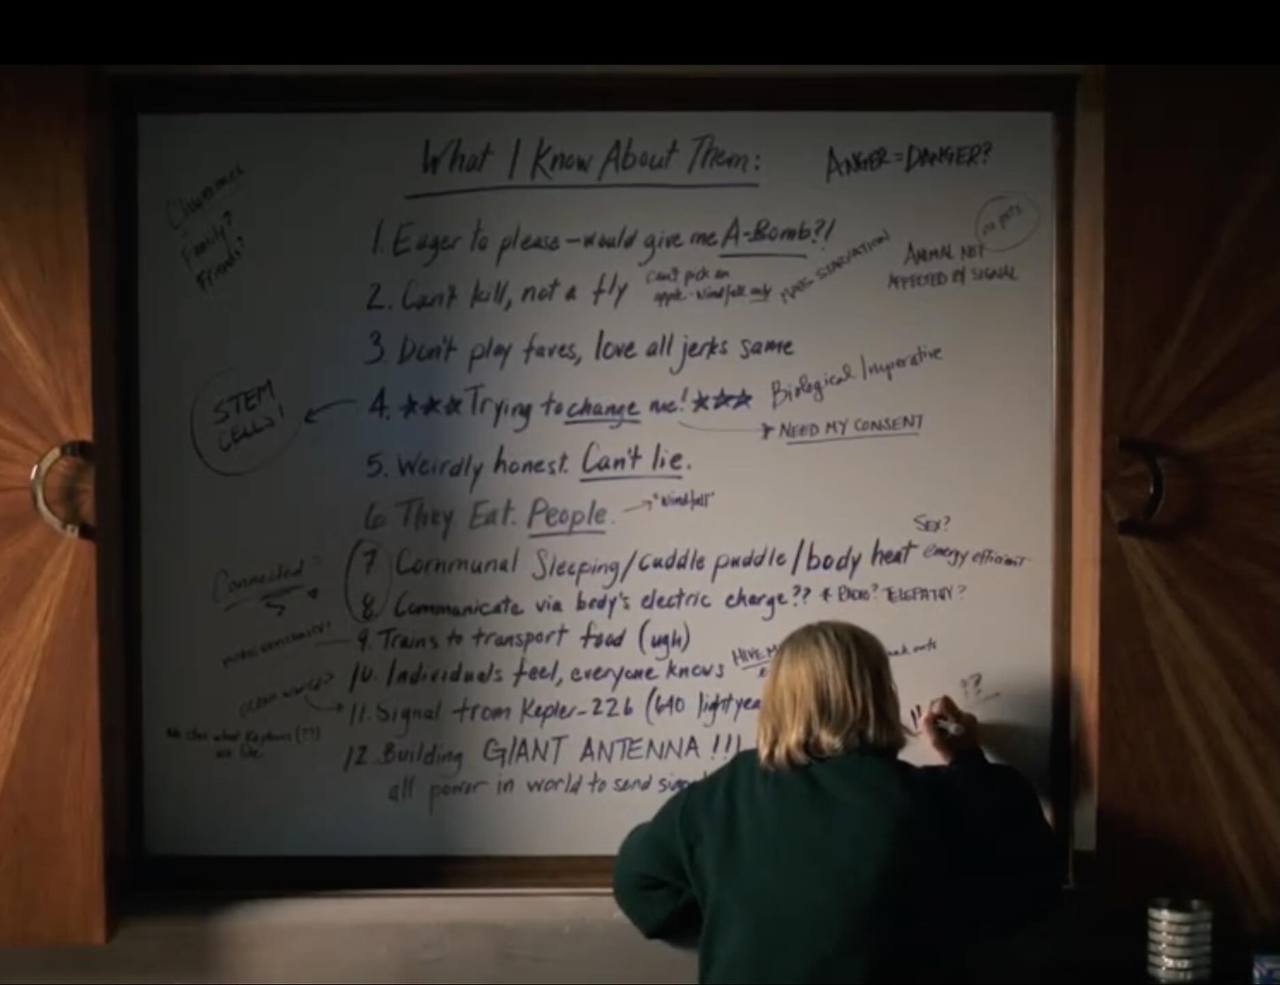 What I Know About Them:
ANGER = DANGER?
Family?
Friends?
no pets
1. Eager to please – would give me A-Bomb?!
ANIMAL NOT
AFFECTED BY SIGNAL
2. Can't kill, not a fly
can't pick an
apple - windfall only
MASS STARVATION
3. Don't play faves, love all jerks same
STEM
CELLS!
4. ★★★ Trying to change me! ★★★
Biological Imperative
NEED MY CONSENT
5. Weirdly honest. Can't lie.
6 They. Eat. People.
"Windfall"
Connected?
7 Communal Sleeping/cuddle puddle/body heat
Sex?
energy efficient
8 Communicate via body's electric charge??
RADIO? TELEPATHY?
9. Trains to transport food (ugh)
10. Individuals feel, everyone knows
HIVE M
11. Signal from Kepler-22b (640 lightyea
??
12. Building GIANT ANTENNA!!!
all power in world to send sign